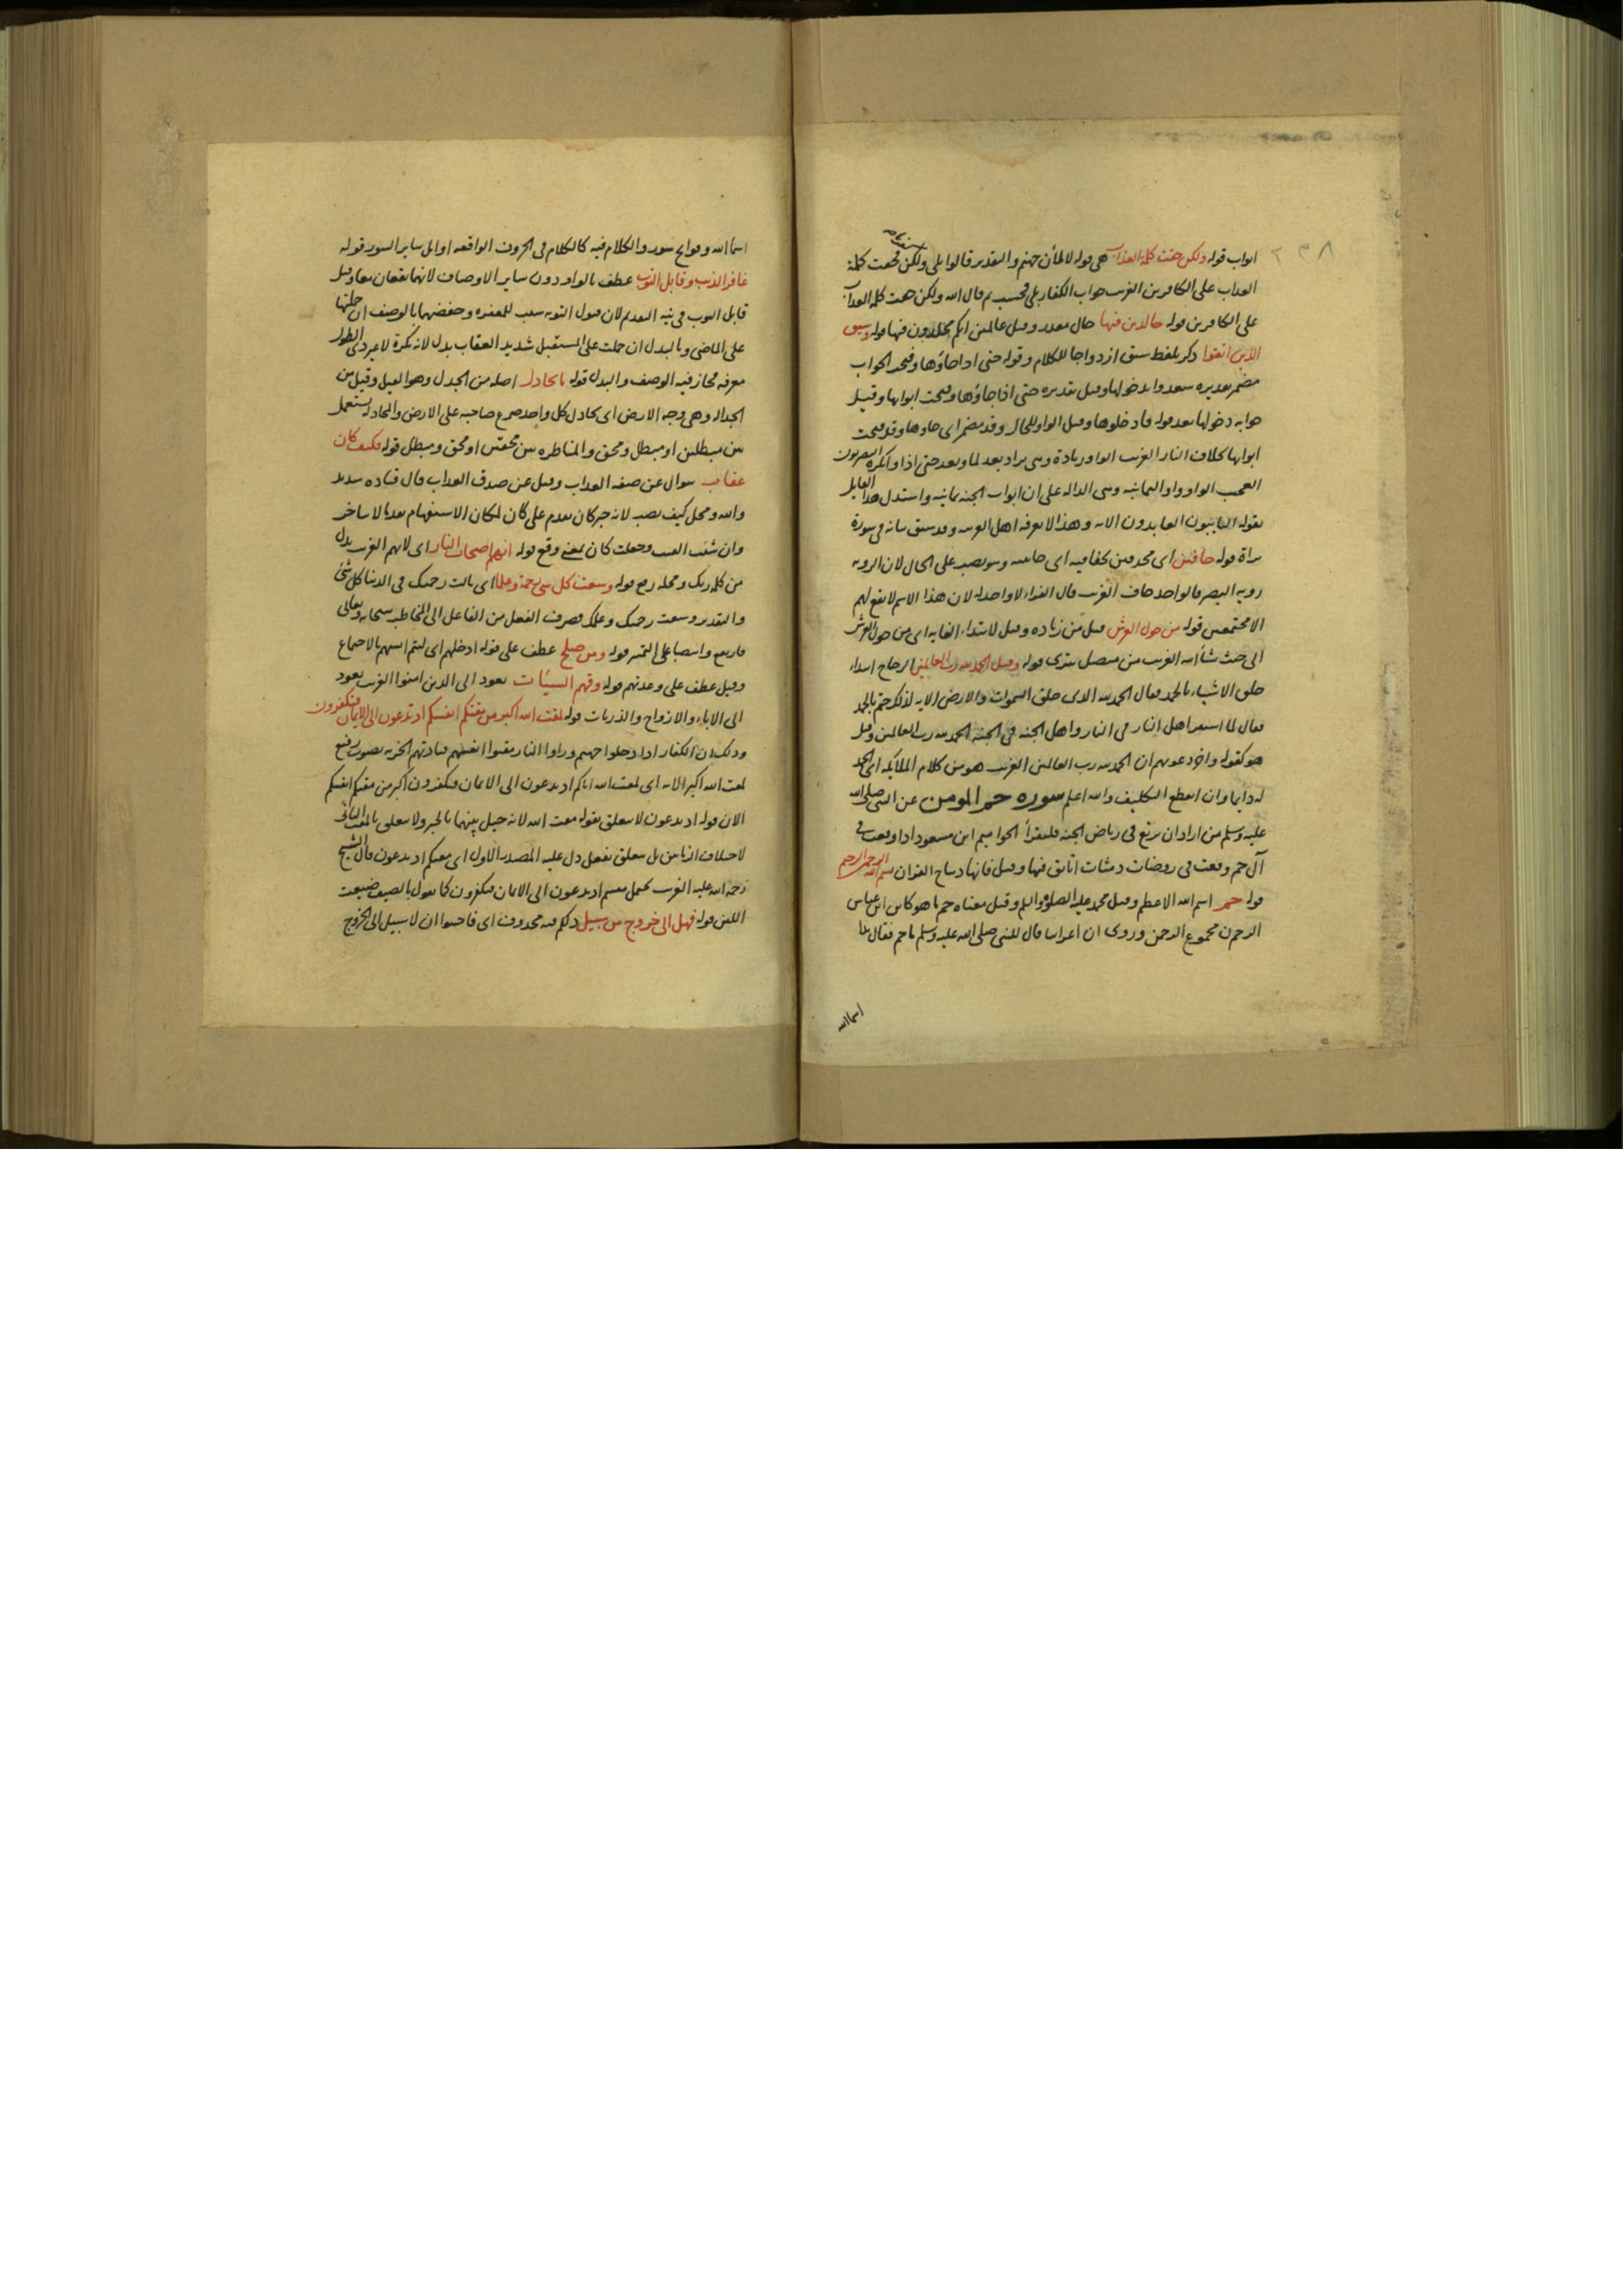 ٢٣٨
ابواب قوله ولكن حقت كلمة العذاب هى قوله لاملأن جهنم والتقدير قالوا بلى ولكن فحقت كلمة
العذاب على الكافرين الغريب جواب الكفار بلى فحسب ثم قال الله ولكن حقت كلمة العذاب
على الكافرين قوله خالدين فيها حال مقدر وقيل عالمين انكم مخلدون فيها قوله وسيق
الذين اتقوا ذكر بلفظ سيق ازدواجا للكلام وقوله حتى اذا جاؤها وفتحت الجواب
مضمر تقديره سعدوا بدخولها وقيل تقديره حتى اذا جاؤها وفتحت ابوابها وقيل
جوابه دخولها بعد قوله فادخلوها وقيل الواو للحال وقد مضمر اى جاوها وقد فتحت
ابوابها بخلاف النار الغريب الواو زيادة وهى يراد بعد لما وبعد حتى اذا وانكره البصريون
العجيب الواو واو الثمانية وهى الدالة على ان ابواب الجنة ثمانية واستدل هذا القايل
بقوله التايبون العابدون الاية وهذا لا يعرفه اهل العربية وقد سبق بيانه فى سورة
براة قوله حافين اى محدقين بحفافيه اى جانبيه وهو نصب على الحال لان الروية
روية البصر والواحد حاف الغريب قال الفراء لا واحد له لان هذا الاسم لا يقع لهم
الا مجتمعين قوله من حول العرش قيل من زيادة وقيل لابتداء الغاية اى من حول العرش
الى حيث شاء الله الغريب من متصل بترى قوله وقيل الحمد لله رب العالمين الزجاج ابتداء
خلق الاشياء بالحمد فقال الحمد لله الذى خلق السموات والارض الاية لذلك ختم بالحمد
فقال لما استقر اهل النار فى النار واهل الجنة فى الجنة الحمد لله رب العالمين وقيل
هو كقوله واخر دعويهم ان الحمد لله رب العالمين الغريب هو من كلام الملائكة اى الحمد
له دايما وان انقطع التكليف والله اعلم سورة حم المومن عن النبى صلى الله
عليه وسلم من اراد ان يرتع فى رياض الجنة فليقرأ الحواميم ابن مسعود اذا وقعت فى
آل حم وقعت فى روضات دمثات اتانق فيها وقيل فانها ديباج القران بسم الله الرحمن الرحيم
قوله حم اسم الله الاعظم وقيل محمد عليه الصلوة والسلم وقيل معناه حم ما هو كاين ابن عباس
الر حم ن مجموع الرحمن وروى ان اعرابيا قال للنبى صلى الله عليه وسلم ما حم فقال بدا
اسما الله
اسما الله وفواتح سور والكلام فيه كالكلام فى الحروف الواقعة اوايل ساير السور قوله
غافر الذنب وقابل التوب عطف بالواو دون ساير الاوصاف لانهما يقعان معا وقيل
قابل التوب فى نية التقديم لان قبول التوبة سبب للمغفرة وخفضهما بالوصف ان حملتها
على الماضى وبالبدل ان حملت على المستقبل شديد العقاب بدل لانه نكرة لا غير ذى الطول
معرفة مجاز فيه الوصف والبدل قوله ما يجادل اصله من الجدل وهو الفتل وقيل من
الجدالة وهى وجه الارض اى يجادل كل واحد صرع صاحبه على الارض والمجادلة يستعمل
بين مبطلين او مبطل ومحق والمناظرة بين محقين او محق ومبطل قوله فكيف كان
عقاب سوال عن صفة العذاب وقيل عن صدق العذاب قال قتادة شديد
والله ومحل كيف نصب لانه خبر كان تقدم على كان لمكان الاستفهام
وان شئت وجعلت كان بمعنى وقع قوله انهم اصحاب النار اى لانهم الغريب بدل
من كلمة ربك ومحله رفع قوله وسعت كل شى رحمة وعلما اى نالت رحمتك فى الدنيا كل شئ
والتقدير وسعت رحمتك وعلمك فصرف الفعل من الفاعل الى المخاطب سبحانه وتعالى
وانتصبا على التمييز قوله ومن صلح عطف على قوله ادخلهم اى ليتم انسهم بالاجتماع
وقيل عطف على وعدتهم قوله وقهم السيئات يعود الى الذين امنوا الغريب يعود
الى الاباء والازواج والذريات قوله لمقت الله اكبر من مقتكم انفسكم اذ تدعون الى الايمان فتكفرون
وذلك ان الكفار اذا دخلوا جهنم وراوا النار مقتوا انفسهم فنادتهم الخزنة بصوت رفيع
لمقت الله اكبر الاية اى لمقت الله اياكم اذ تدعون الى الايمان فتكفرون اكبر من مقتكم انفسكم
الان قوله اذ تدعون لا يتعلق بقوله مقت الله لانه حيل بينهما بالخبر ولا يتعلق بالمقت الثانى
لاختلاف الزمانين بل يتعلق بفعل دل عليه المصدر الاول اى مقتكم اذ تدعون قال الشيخ
رحمة الله عليه الغريب يحتمل مقتم اذ تدعون الى الايمان فتكفرون كما تقول بالصيف ضيعت
اللبن قوله فهل الى خروج من سبيل ذلكم فيه محذوف اى فاجيبوا ان لا سبيل الى الخروج